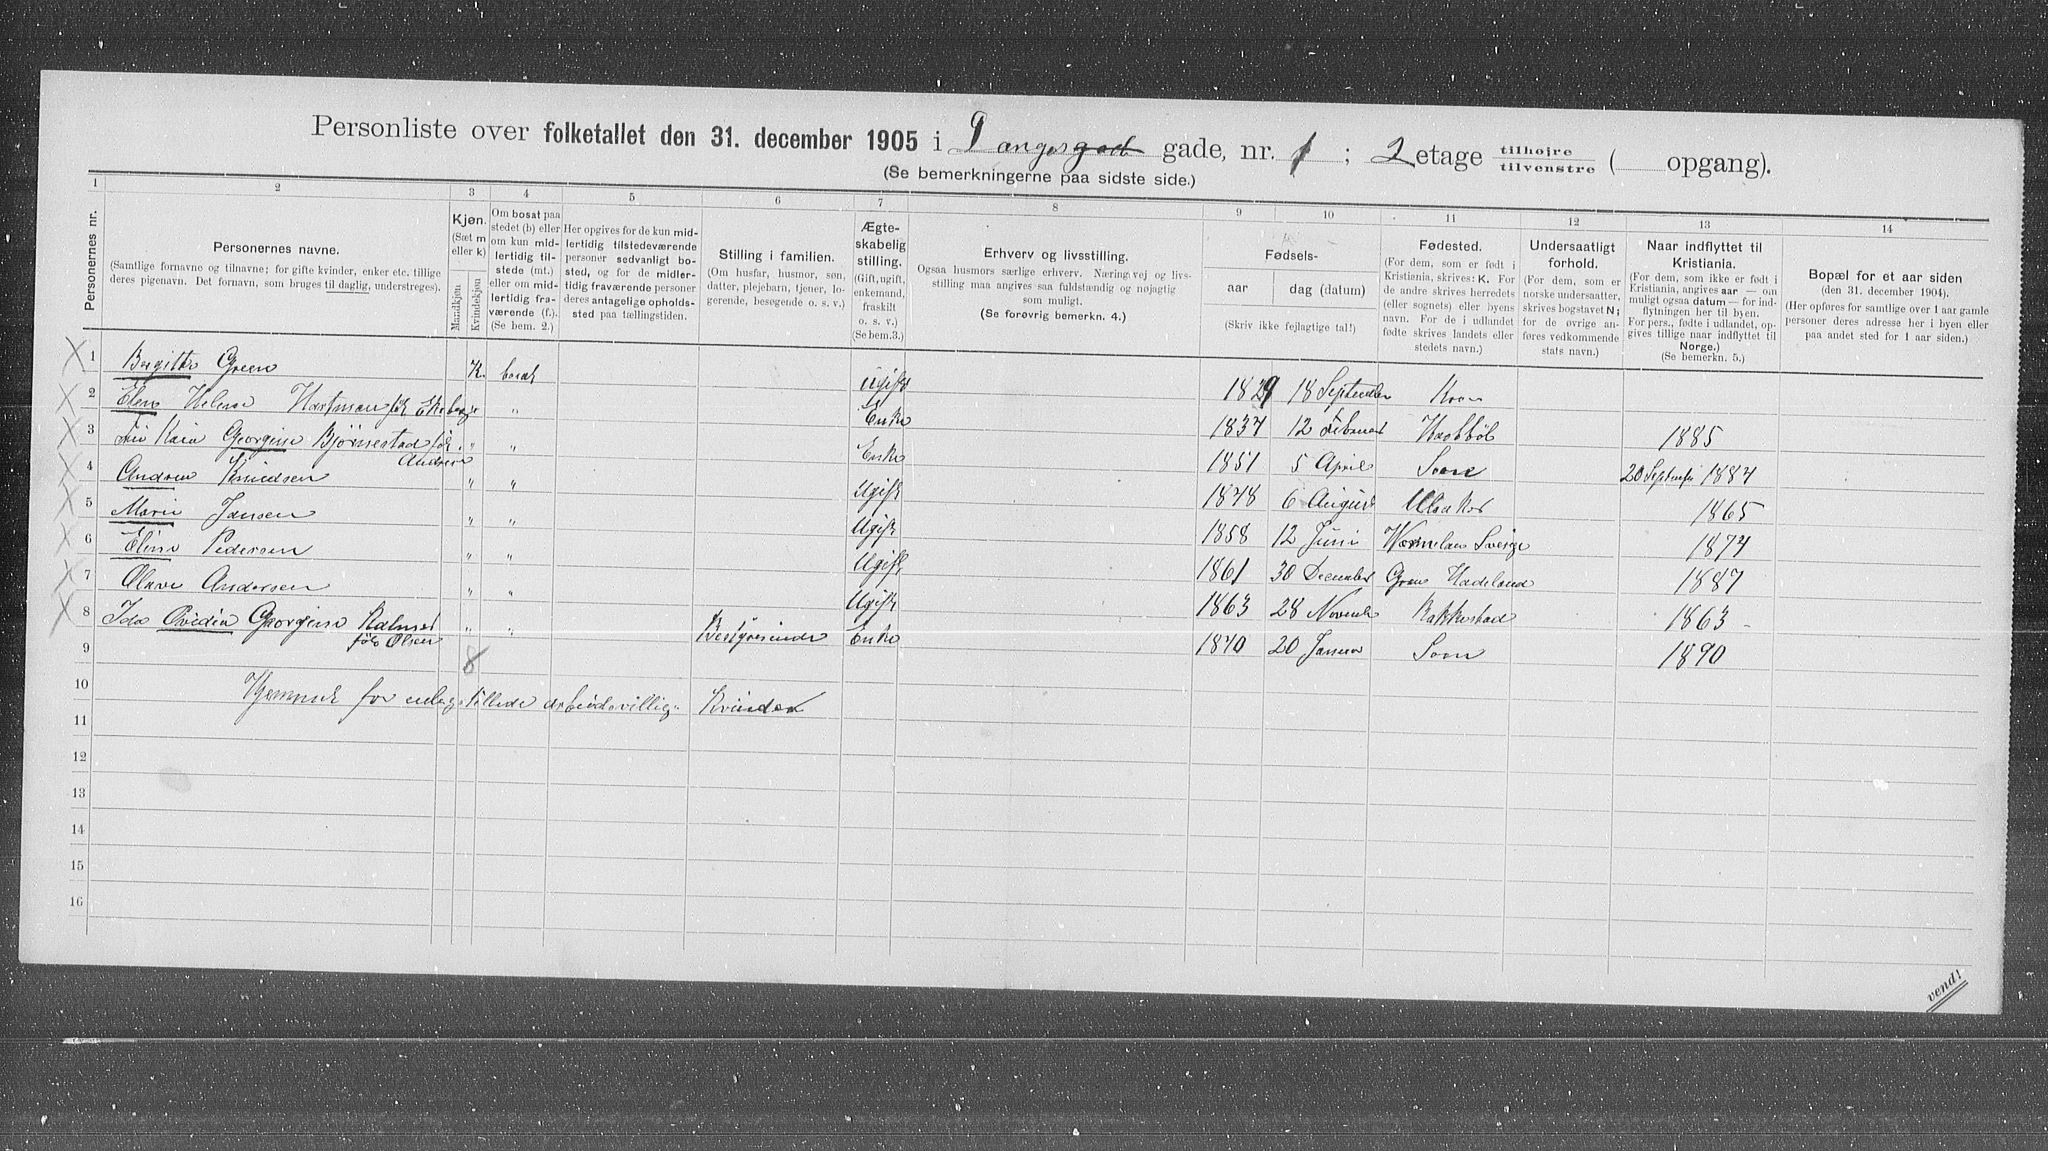 Personliste over folketallet den 31. december 1905 i Langesgad gade, nr. 1; 2 etage tilhøjre / tilvenstre ( opgang).
(Se bemerkningerne paa sidste side.)
1 2 3 4 5 6 7 8 9 10 11 12 13 14
Personernes nr.
Personernes navne.
(Samtlige fornavne og tilnavne; for gifte kvinder, enker etc. tillige deres pigenavn. Det fornavn, som bruges til daglig, understreges).
Kjøn.
(Sæt m eller k)
Mandkjøn
Kvindekjøn
Om bosat paa stedet (b) eller om kun midlertidig tilstede (mt.) eller om midlertidig fraværende (f.). (Se bem. 2.)
Her opgives for de kun midlertidig tilstedeværende personer sedvanligt bosted, og for de midlertidig fraværende personer deres antagelige opholdssted paa tællingstiden.
Stilling i familien.
(Om husfar, husmor, søn, datter, plejebarn, tjener, logerende, besøgende o. s. v.)
Ægteskabelig stilling.
(Gift, ugift, enkemand, fraskilt o. s. v.)
(Se bem. 3.)
Erhverv og livsstilling.
Ogsaa husmors særlige erhverv. Næringsvej og livsstilling maa angives saa fuldstændig og nøjagtig som muligt.
(Se forøvrig bemerkn. 4.)
Fødsels-
aar dag (datum)
(Skriv ikke fejlagtige tal!)
Fødested.
(For dem, som er født i Kristiania, skrives: K. For de andre skrives herredets (eller sognets) eller byens navn. For de i udlandet fødte skrives landets eller stedets navn.)
Undersaatligt forhold.
(For dem, som er norske undersaatter, skrives bogstavet N; for de øvrige anføres vedkommende stats navn.)
Naar indflyttet til Kristiania.
(For dem, som ikke er født i Kristiania, angives aar — om muligt ogsaa datum — for indflytningen her til byen. For pers., fødte i udlandet, opgives tillige naar indflyttet til Norge.)
(Se bemerkn. 5.)
Bopæl for et aar siden
(den 31. december 1904).
(Her opføres for samtlige over 1 aar gamle personer deres adresse her i byen eller paa andet sted for 1 aar siden.)
1 Birgitte Green K. bosat Ugift 1829 18 September
2 Elen Helene Hartman født Ekeberg " " Enke 1837 12 Februar 1885
3 Kaia Georgine Bjørnestad født Andresen " " Enke 1851 5 April Soon 20 September 1884
4 Andrea Knudsen " " Ugift 1848 6 August 1865
5 Marie Jansen " " Ugift 1858 12 Juni Wærmeland Sverige 1874
6 Eline Pedersen " " Ugift 1861 30 December Gran Hadeland 1887
7 Olave Andersen " " Ugift 1863 28 Novemb Rakkestad 1863
8 Ida Ovidia Georgine født Olsen " " Bestyrerinde Enke 1870 20 Januar Soon 1890
9 8
10 Hjemmet for arbeidsvillige Kvinder
11
12
13
14
15
16
vend!